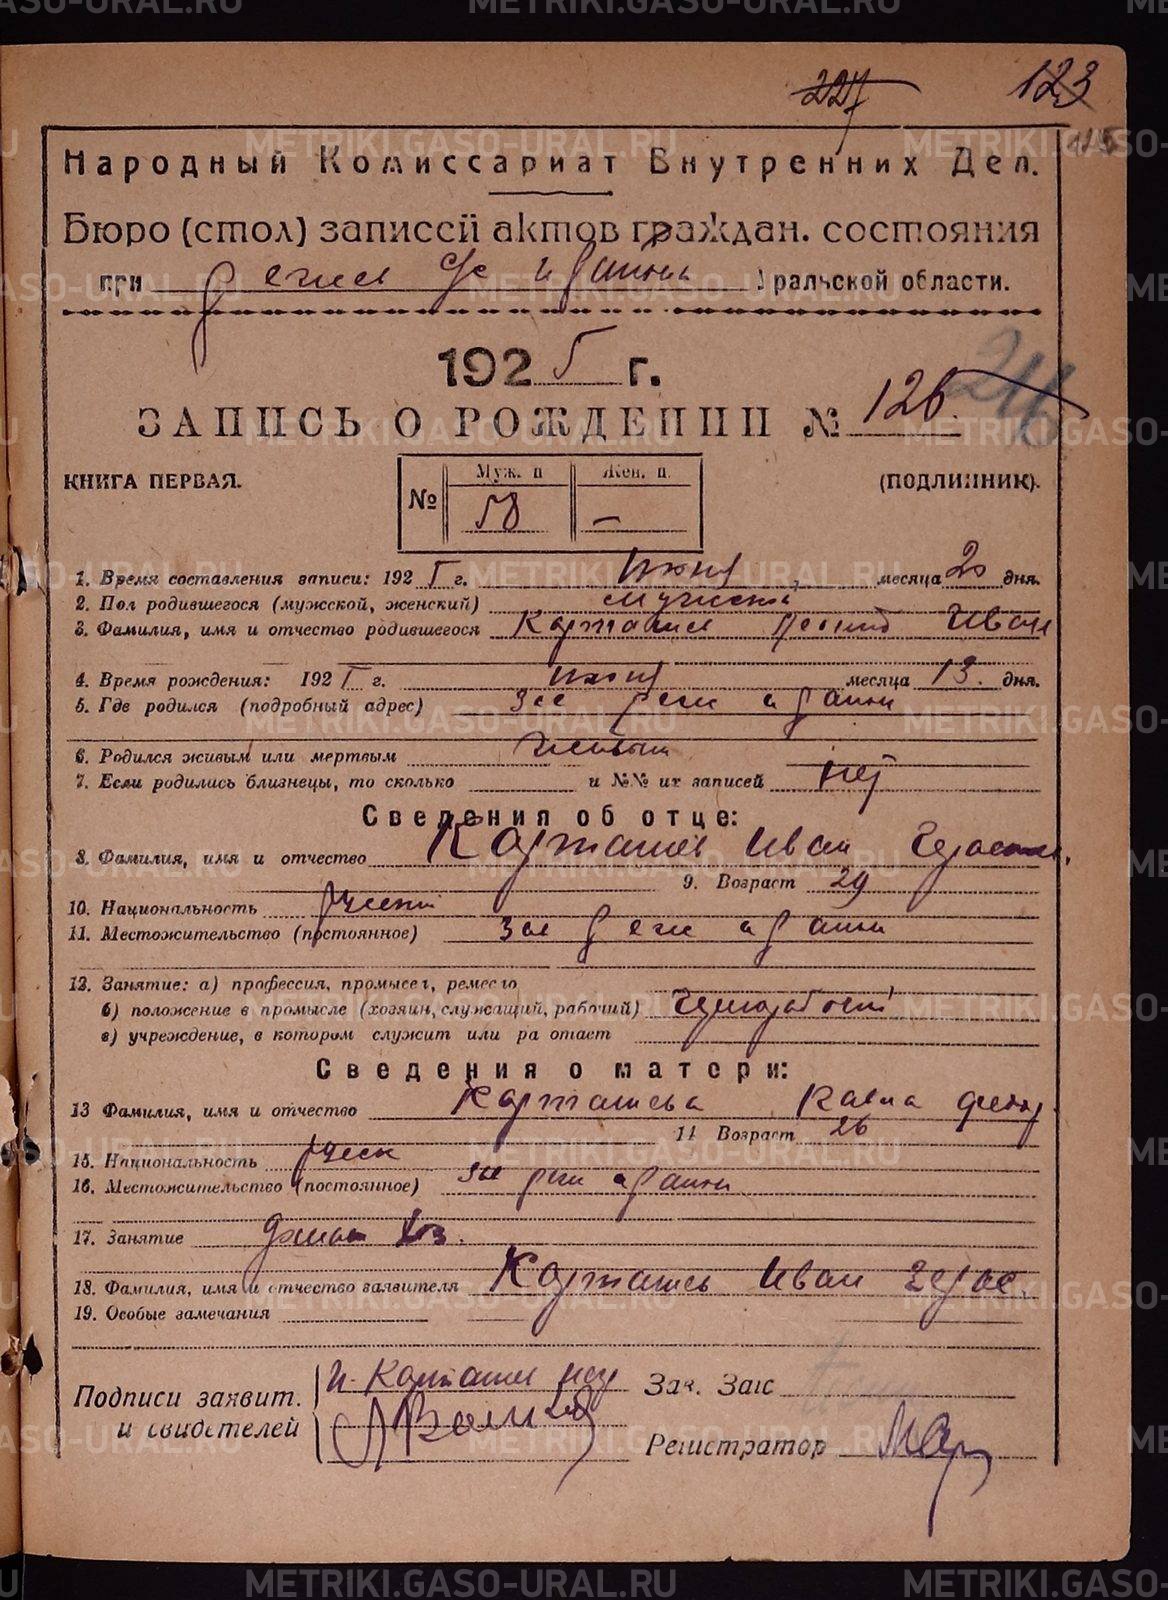 227 123
115
Народный Комиссариат Внутренних Дел.
Бюро (стол) записей актов граждан. состояния
при Режев с/с и района Уральской области.
1925 г.
ЗАПИСЬ О РОЖДЕНИИ № 126.
КНИГА ПЕРВАЯ.
(ПОДЛИННИК).
№ Муж. п Жен. п.
58 —
1. Время составления записи: 1925 г. Июня месяца 20 дня.
2. Пол родившегося (мужской, женский) мужской
3. Фамилия, имя и отчество родившегося Карташев Леонид Иван
4. Время рождения: 1925 г. июня месяца 13. дня.
5. Где родился (подробный адрес) района
6. Родился живым или мертвым живым
7. Если родились близнецы, то сколько и №№ их записей нет
Сведения об отце:
8. Фамилия, имя и отчество Карташев Иван Герасим.
9. Возраст 29
10. Национальность русский
11. Местожительство (постоянное) района
12. Занятие: а) профессия, промысел, ремесло
б) положение в промысле (хозяин, служащий, рабочий) Чернорабочий
в) учреждение, в котором служит или работает
Сведения о матери:
13 Фамилия, имя и отчество Карташева Федор.
14 Возраст 26
15. Национальность русск
16. Местожительство (постоянное) района
17. Занятие домаш хоз.
18. Фамилия, имя и отчество заявителя Карташев Иван Герас.
19. Особые замечания
Подписи заявит. И. Карташев Зав. Загс
и свидетелей
Регистратор
METRIKI.GASO-URAL.RU